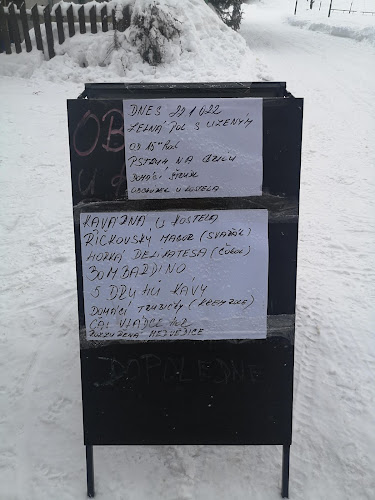 DNES
ZELNÁ POL S UZENÝM
OD 15°° HOD
PSTRUH NA GRILU
DOMÁCÍ ŠTRÚDL
OBČŮREK U KOSTELA
KAVÁRNA U KOSTELA
ŘÍČKOVSKÝ MAGOR (SVAŘÁK)
HORKÁ DELIKATESA (ČOKOL)
BOMBARDINO
5 DRUHŮ KÁVY
DOMÁCÍ TRUBIČKY (KREMROLE)
ČAJ VLÁDCE HOR
MEDVĚDICE
OB
U
DOPOLEDNE